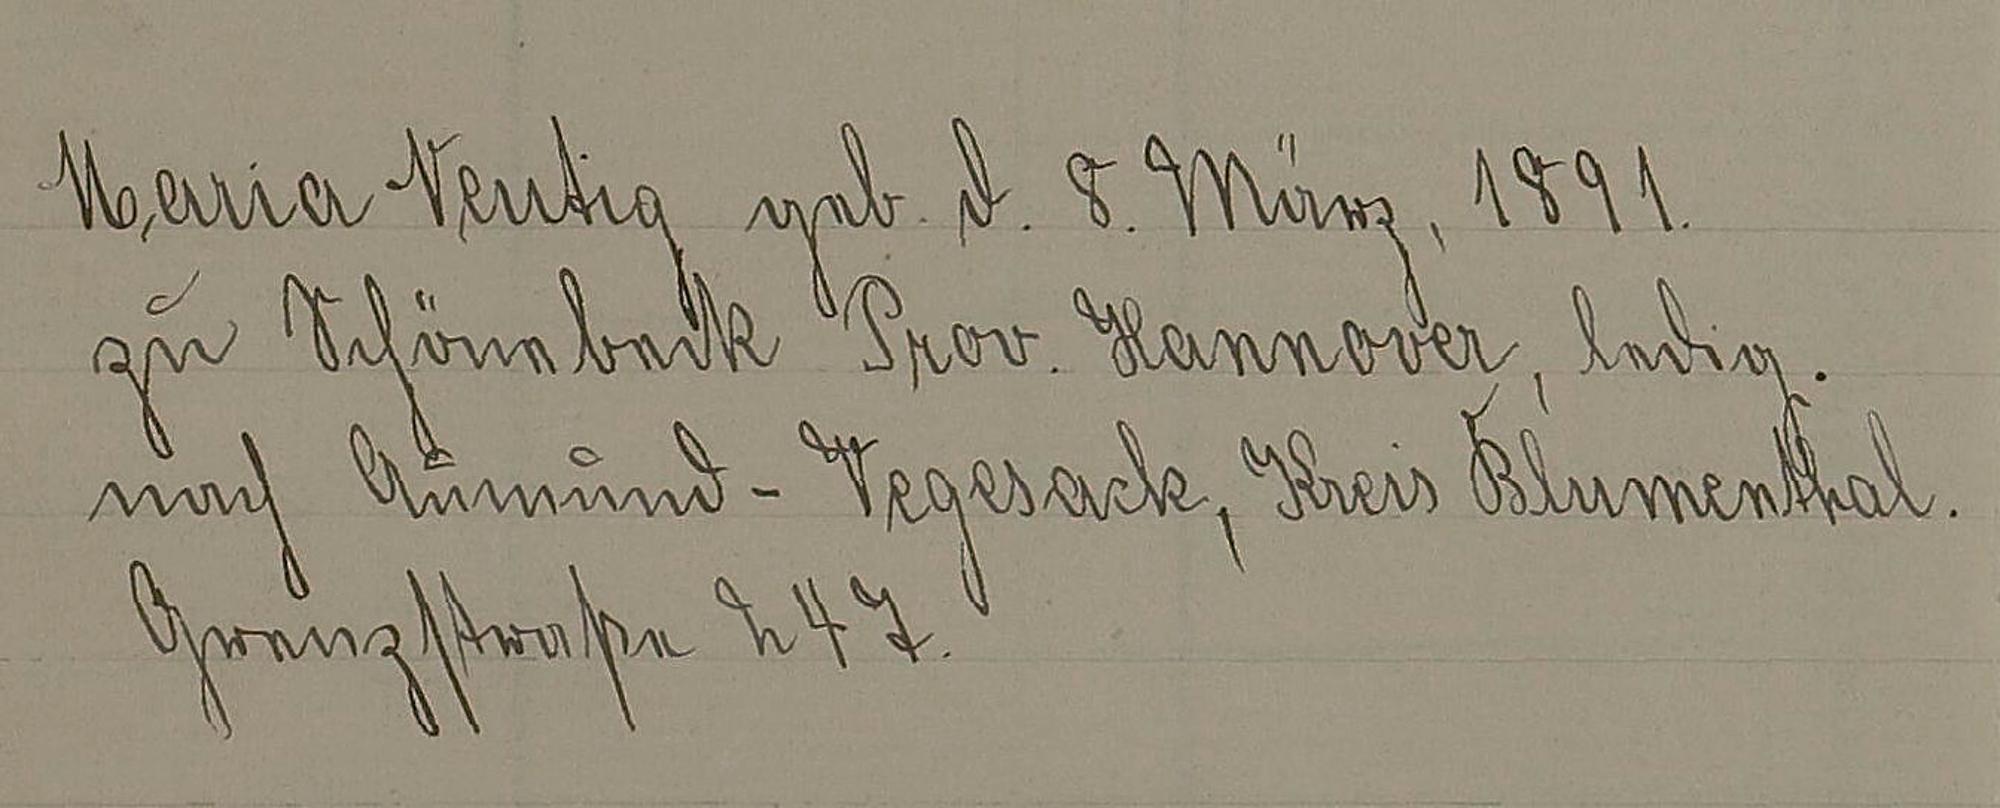 Maria Ventig geb. d. 8. März, 1891.
zu Schönebeck Prov. Hannover, ledig.
nach Aumund - Vegesack, Kreis Blumenthal.
Grenzstraße 247.